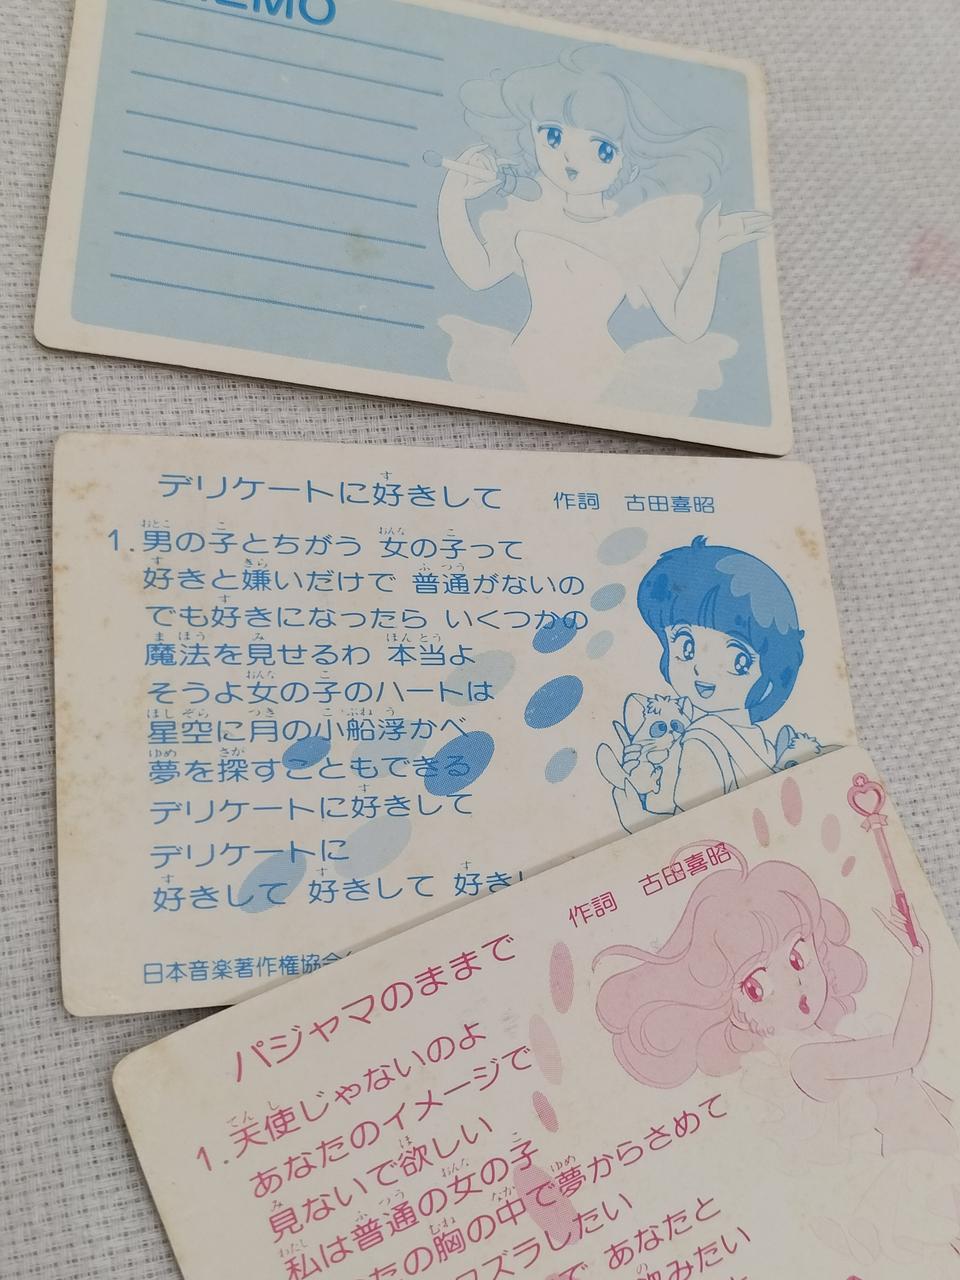 MEMO
デリケートに好きして
作詞 古田喜昭
1.男の子とちがう 女の子って
好きと嫌いだけで 普通がないの
でも好きになったら いくつかの
魔法を見せるわ 本当よ
そうよ女の子のハートは
星空に月の小船浮かべ
夢を探すこともできる
デリケートに好きして
デリケートに
好きして 好きして 好きし
日本音楽著作権協会
パジャマのままで
作詞 古田喜昭
1.天使じゃないのよ
あなたのイメージで
見ないで欲しい
私は普通の女の子
たの胸の中で夢からさめて
ズラしたい
で あなたと
みたい